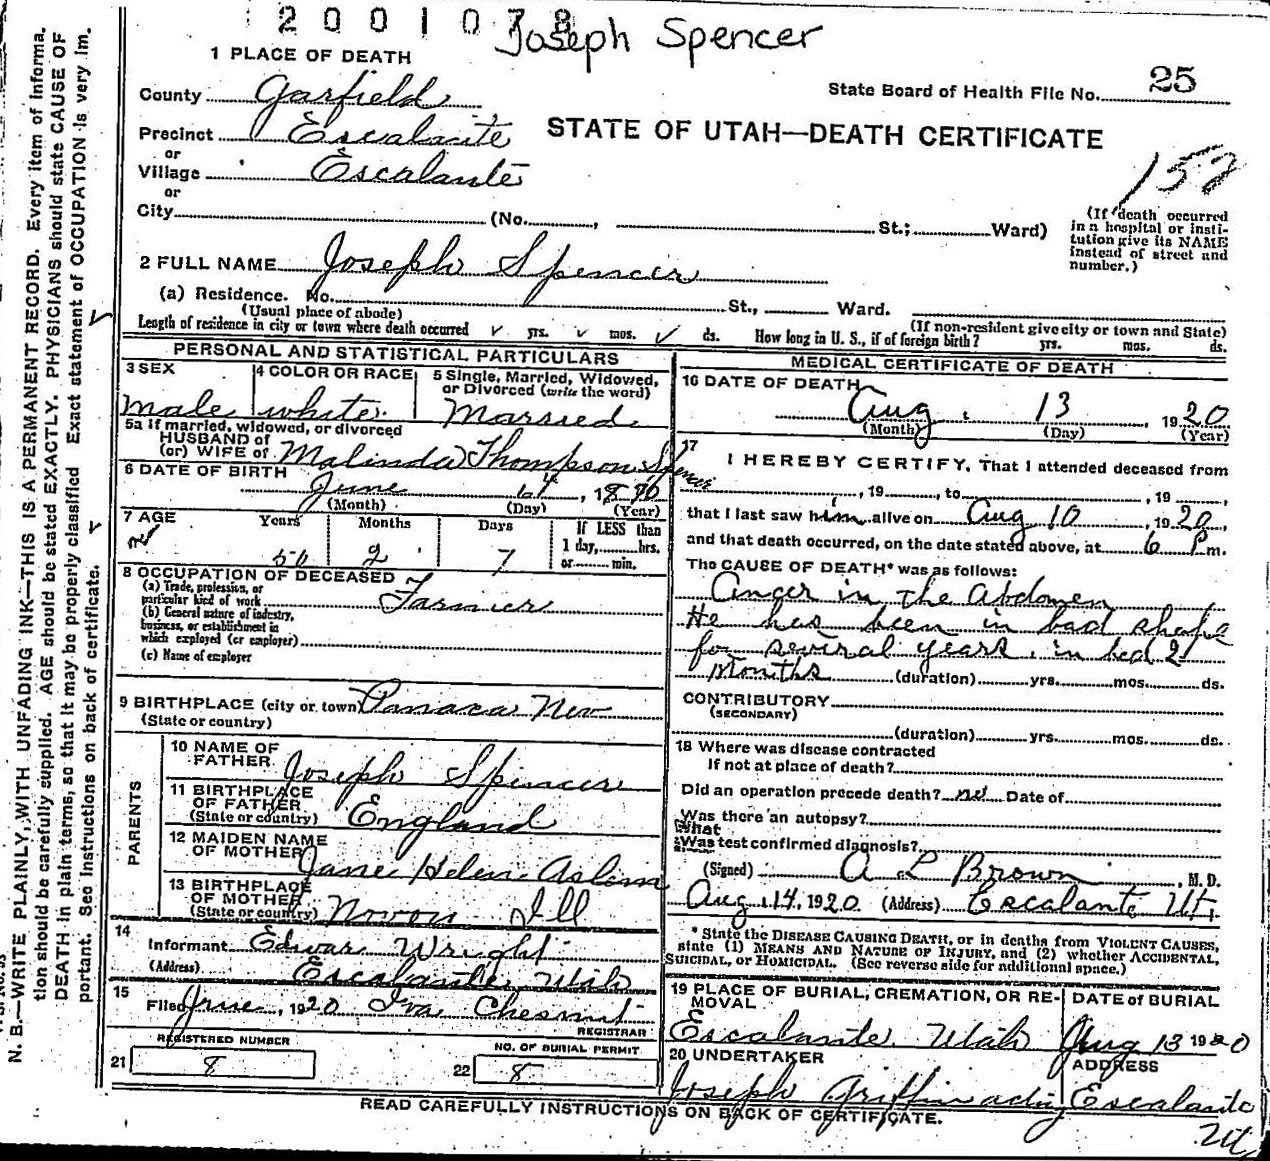 2001078
Joseph Spencer
1 PLACE OF DEATH
State Board of Health File No. 25
County Garfield
STATE OF UTAH—DEATH CERTIFICATE
Precinct Escalante
or
Village Escalante
152
or
City (No. , St.; Ward)
(If death occurred
in a hospital or insti-
tution give its NAME
instead of street and
number.)
2 FULL NAME Joseph Spencer
(a) Residence. No. St., Ward.
(Usual place of abode) (If non-resident give city or town and State)
Length of residence in city or town where death occurred yrs. mos. ds. How long in U. S., if of foreign birth? yrs. mos. ds.
PERSONAL AND STATISTICAL PARTICULARS
3 SEX
male
4 COLOR OR RACE
white
5 Single, Married, Widowed,
or Divorced (write the word)
Married
5a If married, widowed, or divorced
HUSBAND of
(or) WIFE of Malinda Thompson Spencer
6 DATE OF BIRTH
June 6, 1870
(Month) (Day) (Year)
7 AGE
Years Months Days
50 2 7
If LESS than
1 day, hrs.
or min.
8 OCCUPATION OF DECEASED
(a) Trade, profession, or
particular kind of work Farmer
(b) General nature of industry,
business, or establishment in
which employed (or employer)
(c) Name of employer
9 BIRTHPLACE (city or town) Panaca Nev
(State or country)
PARENTS
10 NAME OF
FATHER Joseph Spencer
11 BIRTHPLACE
OF FATHER
(State or country) England
12 MAIDEN NAME
OF MOTHER Jane Helen
13 BIRTHPLACE
OF MOTHER
(State or country) Novou Ill
14
Informant Edwar Wright
(Address) Escalante Utah
15
Filed June, 1920 Iva Chesnut
REGISTRAR
REGISTERED NUMBER
21 8
NO. OF BURIAL PERMIT
22 8
MEDICAL CERTIFICATE OF DEATH
16 DATE OF DEATH
Aug. 13 1920
(Month) (Day) (Year)
17
I HEREBY CERTIFY, That I attended deceased from
, 19 , to , 19 ,
that I last saw him alive on Aug 10, 1920,
and that death occurred, on the date stated above, at 6 P.m.
The CAUSE OF DEATH* was as follows:
Cancer in the Abdomen
He has been in bad shape
for several years. in bed 2
Months (duration) yrs. mos. ds.
CONTRIBUTORY
(SECONDARY)
(duration) yrs. mos. ds.
18 Where was disease contracted
If not at place of death?
Did an operation precede death? no Date of
Was there an autopsy?
What
Was test confirmed diagnosis?
(Signed) A L Brown, M. D.
Aug. 14, 1920 (Address) Escalante Ut.
* State the DISEASE CAUSING DEATH, or in deaths from VIOLENT CAUSES,
state (1) MEANS AND NATURE OF INJURY, and (2) whether ACCIDENTAL,
SUICIDAL, or HOMICIDAL. (See reverse side for additional space.)
19 PLACE OF BURIAL, CREMATION, OR RE-
MOVAL
Escalante Utah
DATE of BURIAL
Aug 13 1920
20 UNDERTAKER
Joseph Griffin acting
ADDRESS
Escalante
Ut
READ CAREFULLY INSTRUCTIONS ON BACK OF CERTIFICATE.
N. B.—WRITE PLAINLY, WITH UNFADING INK—THIS IS A PERMANENT RECORD. Every item of informa-
tion should be carefully supplied. AGE should be stated EXACTLY. PHYSICIANS should state CAUSE OF
DEATH in plain terms, so that it may be properly classified Exact statement of OCCUPATION is very im-
portant. See instructions on back of certificate.